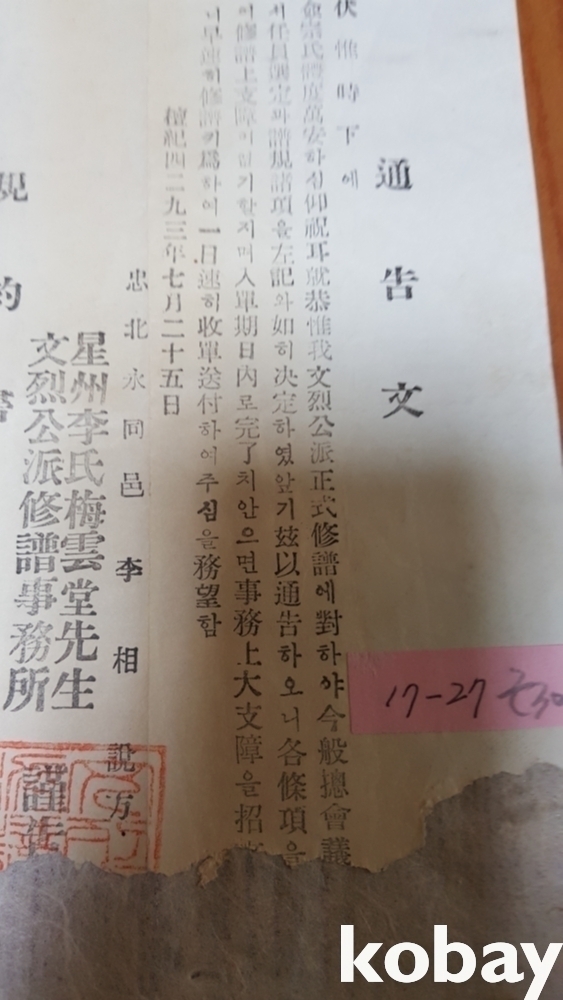 通告文
伏惟時下에
僉宗氏體度萬安하심仰祝耳就恭惟我文烈公派正式修譜에對하야今般總會議
서任員選定과譜規諸項을左記와如히決定하였앞기玆以通告하오니各條項을
修譜上支障이 할지며入單期日內로完了치안으면事務上大支障을招
니早速히修譜키爲하여一日速히收單送付하여주심을務望함
檀紀四二九三年七月二十五日
忠北永同邑李相說方
星州李氏梅雲堂先生
文烈公派修譜事務所 謹告
規約書
17-27
kobay